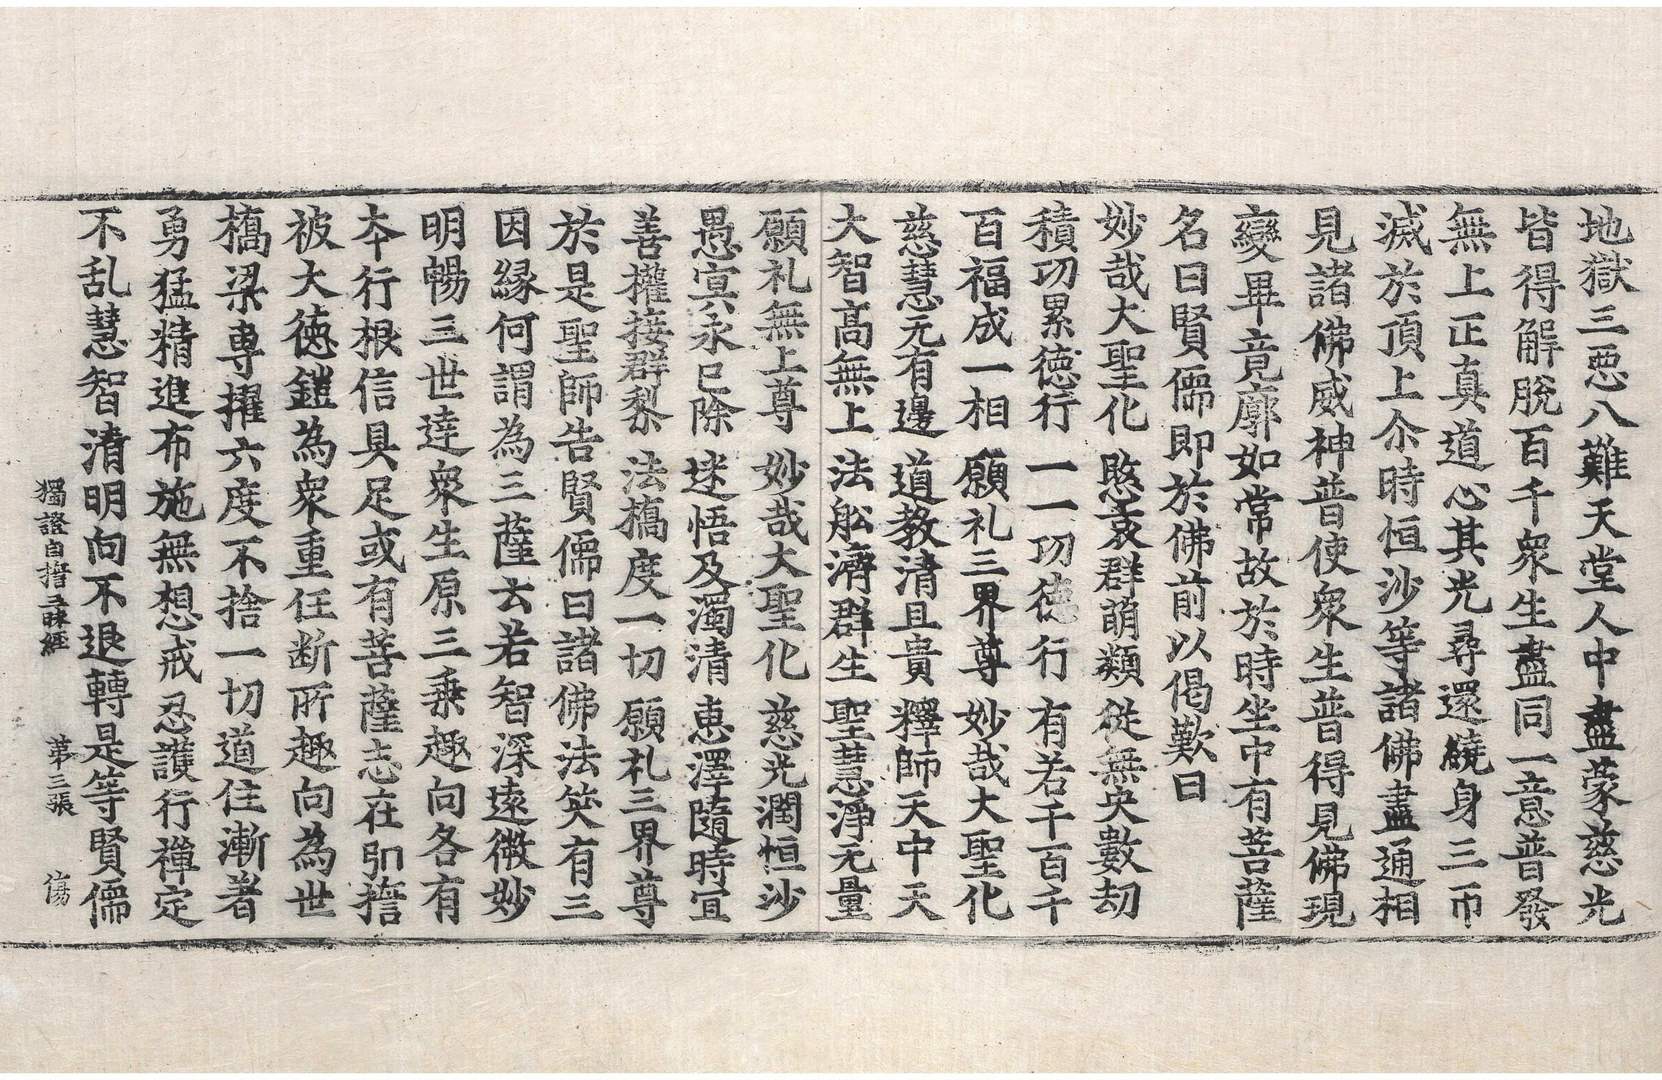 地獄三惡八難天堂人中盡蒙慈光
皆得解脫百千衆生盡同一意普發
無上正真道心其光尋還繞身三帀
滅於頂上尒時恒沙等諸佛盡通相
見諸佛威神普使衆生普得見佛現
變畢竟廓如常故於時坐中有菩薩
名曰賢儒即於佛前以偈歎曰
妙哉大聖化 愍哀群萌類 從無央數劫
積功累德行 一一功德行 有若干百千
百福成一相 願礼三界尊 妙哉大聖化
慈慧无有邊 道教清且貴 釋師天中天
大智高無上 法舩濟群生 聖慧淨无量
願礼無上尊 妙哉大聖化 慈光潤恒沙
愚冥永已除 迷悟及濁清 恵澤隨時宜
善權接群黎 法橋度一切 願礼三界尊
於是聖師告賢儒曰諸佛法笑有三
因緣何謂為三薩云若智深遠微妙
明暢三世達衆生原三乗趣向各有
夲行根信具足或有菩薩志在弘擔
被大德鎧為衆重任断所趣向為世
橋梁專擢六度不捨一切道住漸者
勇猛精進布施無想戒忍護行禪定
不乱慧智清明向不退轉是等賢儒
獨證自擔三昧經 第三張 傷